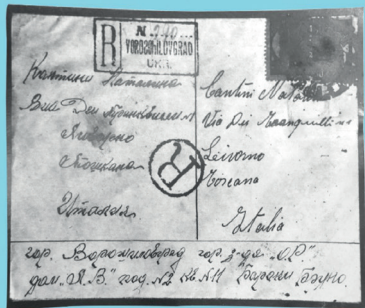 R
N 940
VOROSCHILOVGRAD
UKR.
Кантини Наталина
Виа Деи
Ливорно
Тоскана
Италия
R
Cantini Natalina
Via Dei Tranquilli
Livorno
Toscana
Italia
гор. Ворошиловград гор. з-да "ОР"
дом "ЯВ" под. №2 кв. №11 Бруно